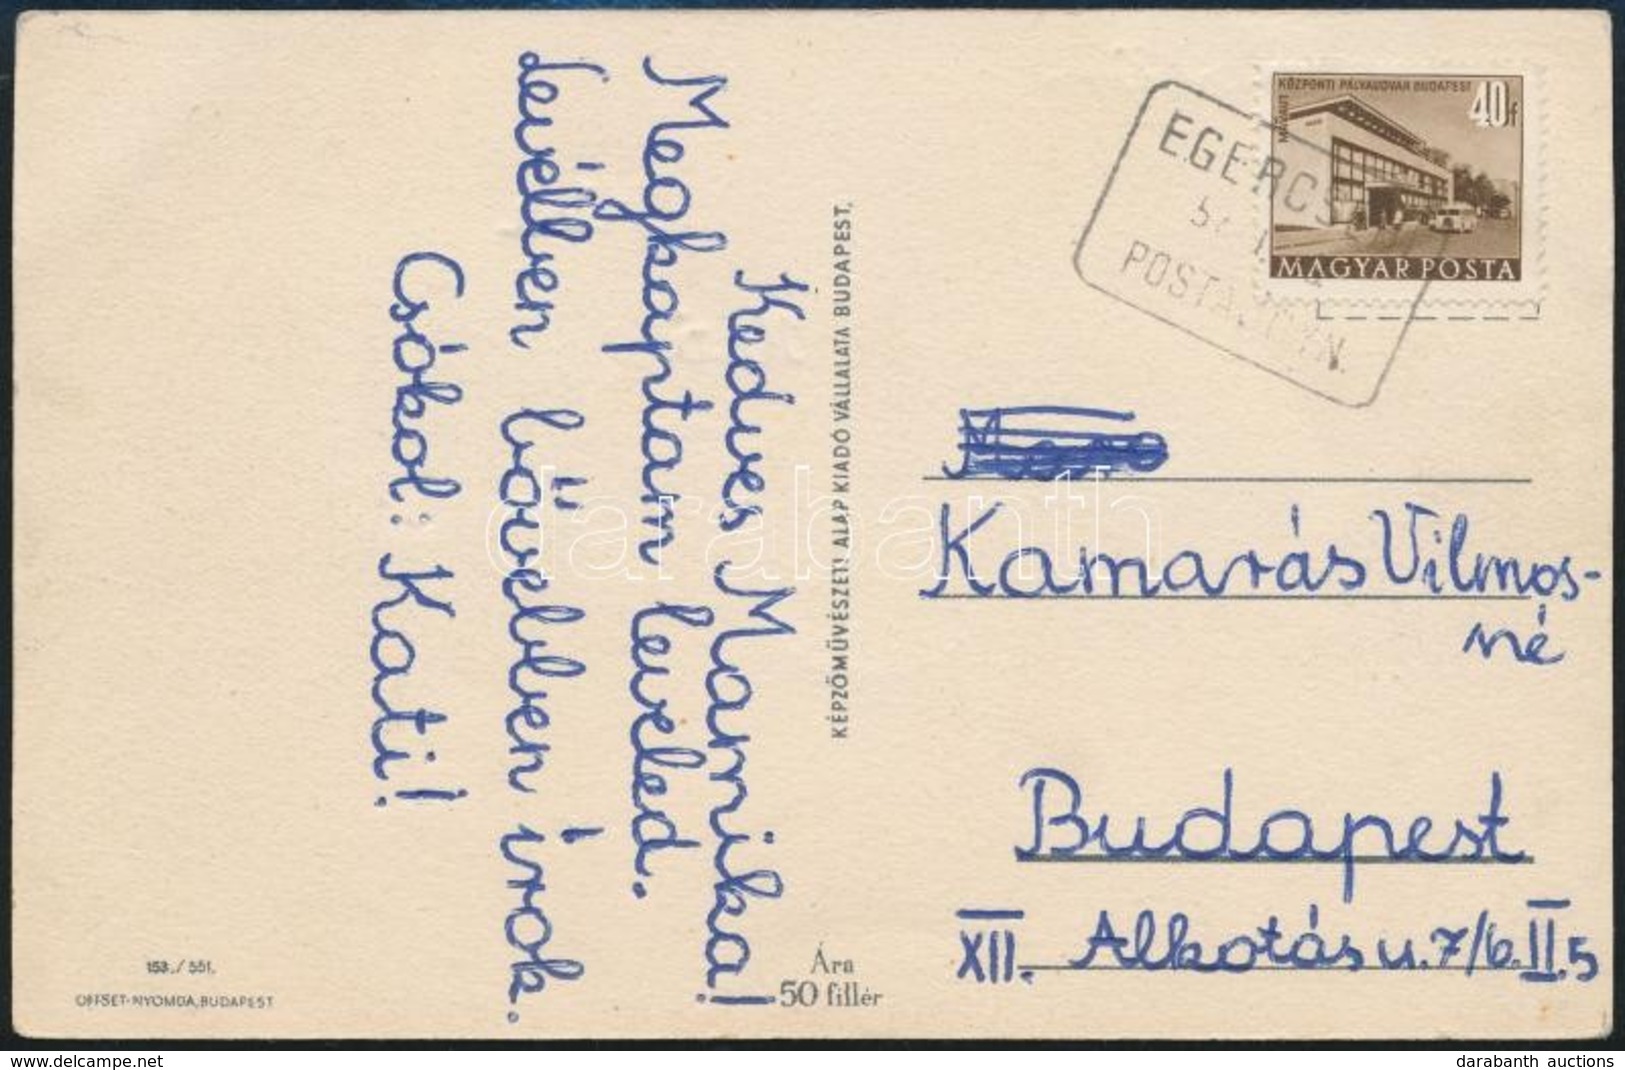 Kedves Marnika!
Megkaptam leveled.
Levélben bővebben írok.
Csókol: Kati!
KÉPZŐMŰVÉSZETI ALAP KIADÓ VÁLLALATA BUDAPEST.
Ára
50 fillér
153./551.
OFFSET-NYOMDA, BUDAPEST
MÁVAUT KÖZPONTI PÁLYAUDVAR BUDAPEST
40f
MAGYAR POSTA
EGERCS
POSTA
Kamarás Vilmos-
né
Budapest
XII. Alkotás u. 7/b. II. 5
darabanth
darabanth auctions